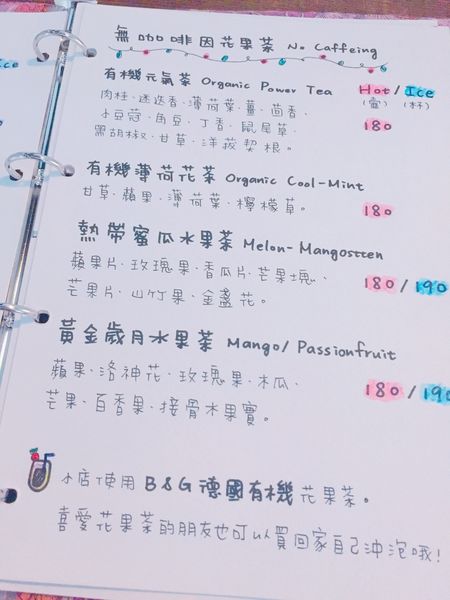 Ice
無咖啡因花果茶 No Caffeing
有機元氣茶 Organic Power Tea Hot / Ice
(壺) (杯)
肉桂、迷迭香、薄荷葉、薑、茴香、 180
小豆蔻、角豆、丁香、鼠尾草、
黑胡椒、甘草、洋菝契根。
有機薄荷花茶 Organic Cool-Mint
甘草、蘋果、薄荷葉、檸檬草。 180
熱帶蜜瓜水果茶 Melon-Mangostten
蘋果片、玫瑰果、香瓜片、芒果塊、 180 / 190
芒果片、山竹果、金盞花。
黃金歲月水果茶 Mango/ Passionfruit
蘋果、洛神花、玫瑰果、木瓜、 180 / 190
芒果、百香果、接骨木果實。
小店使用 B&G德國有機花果茶。
喜愛花果茶的朋友也可以買回家自己沖泡哦!